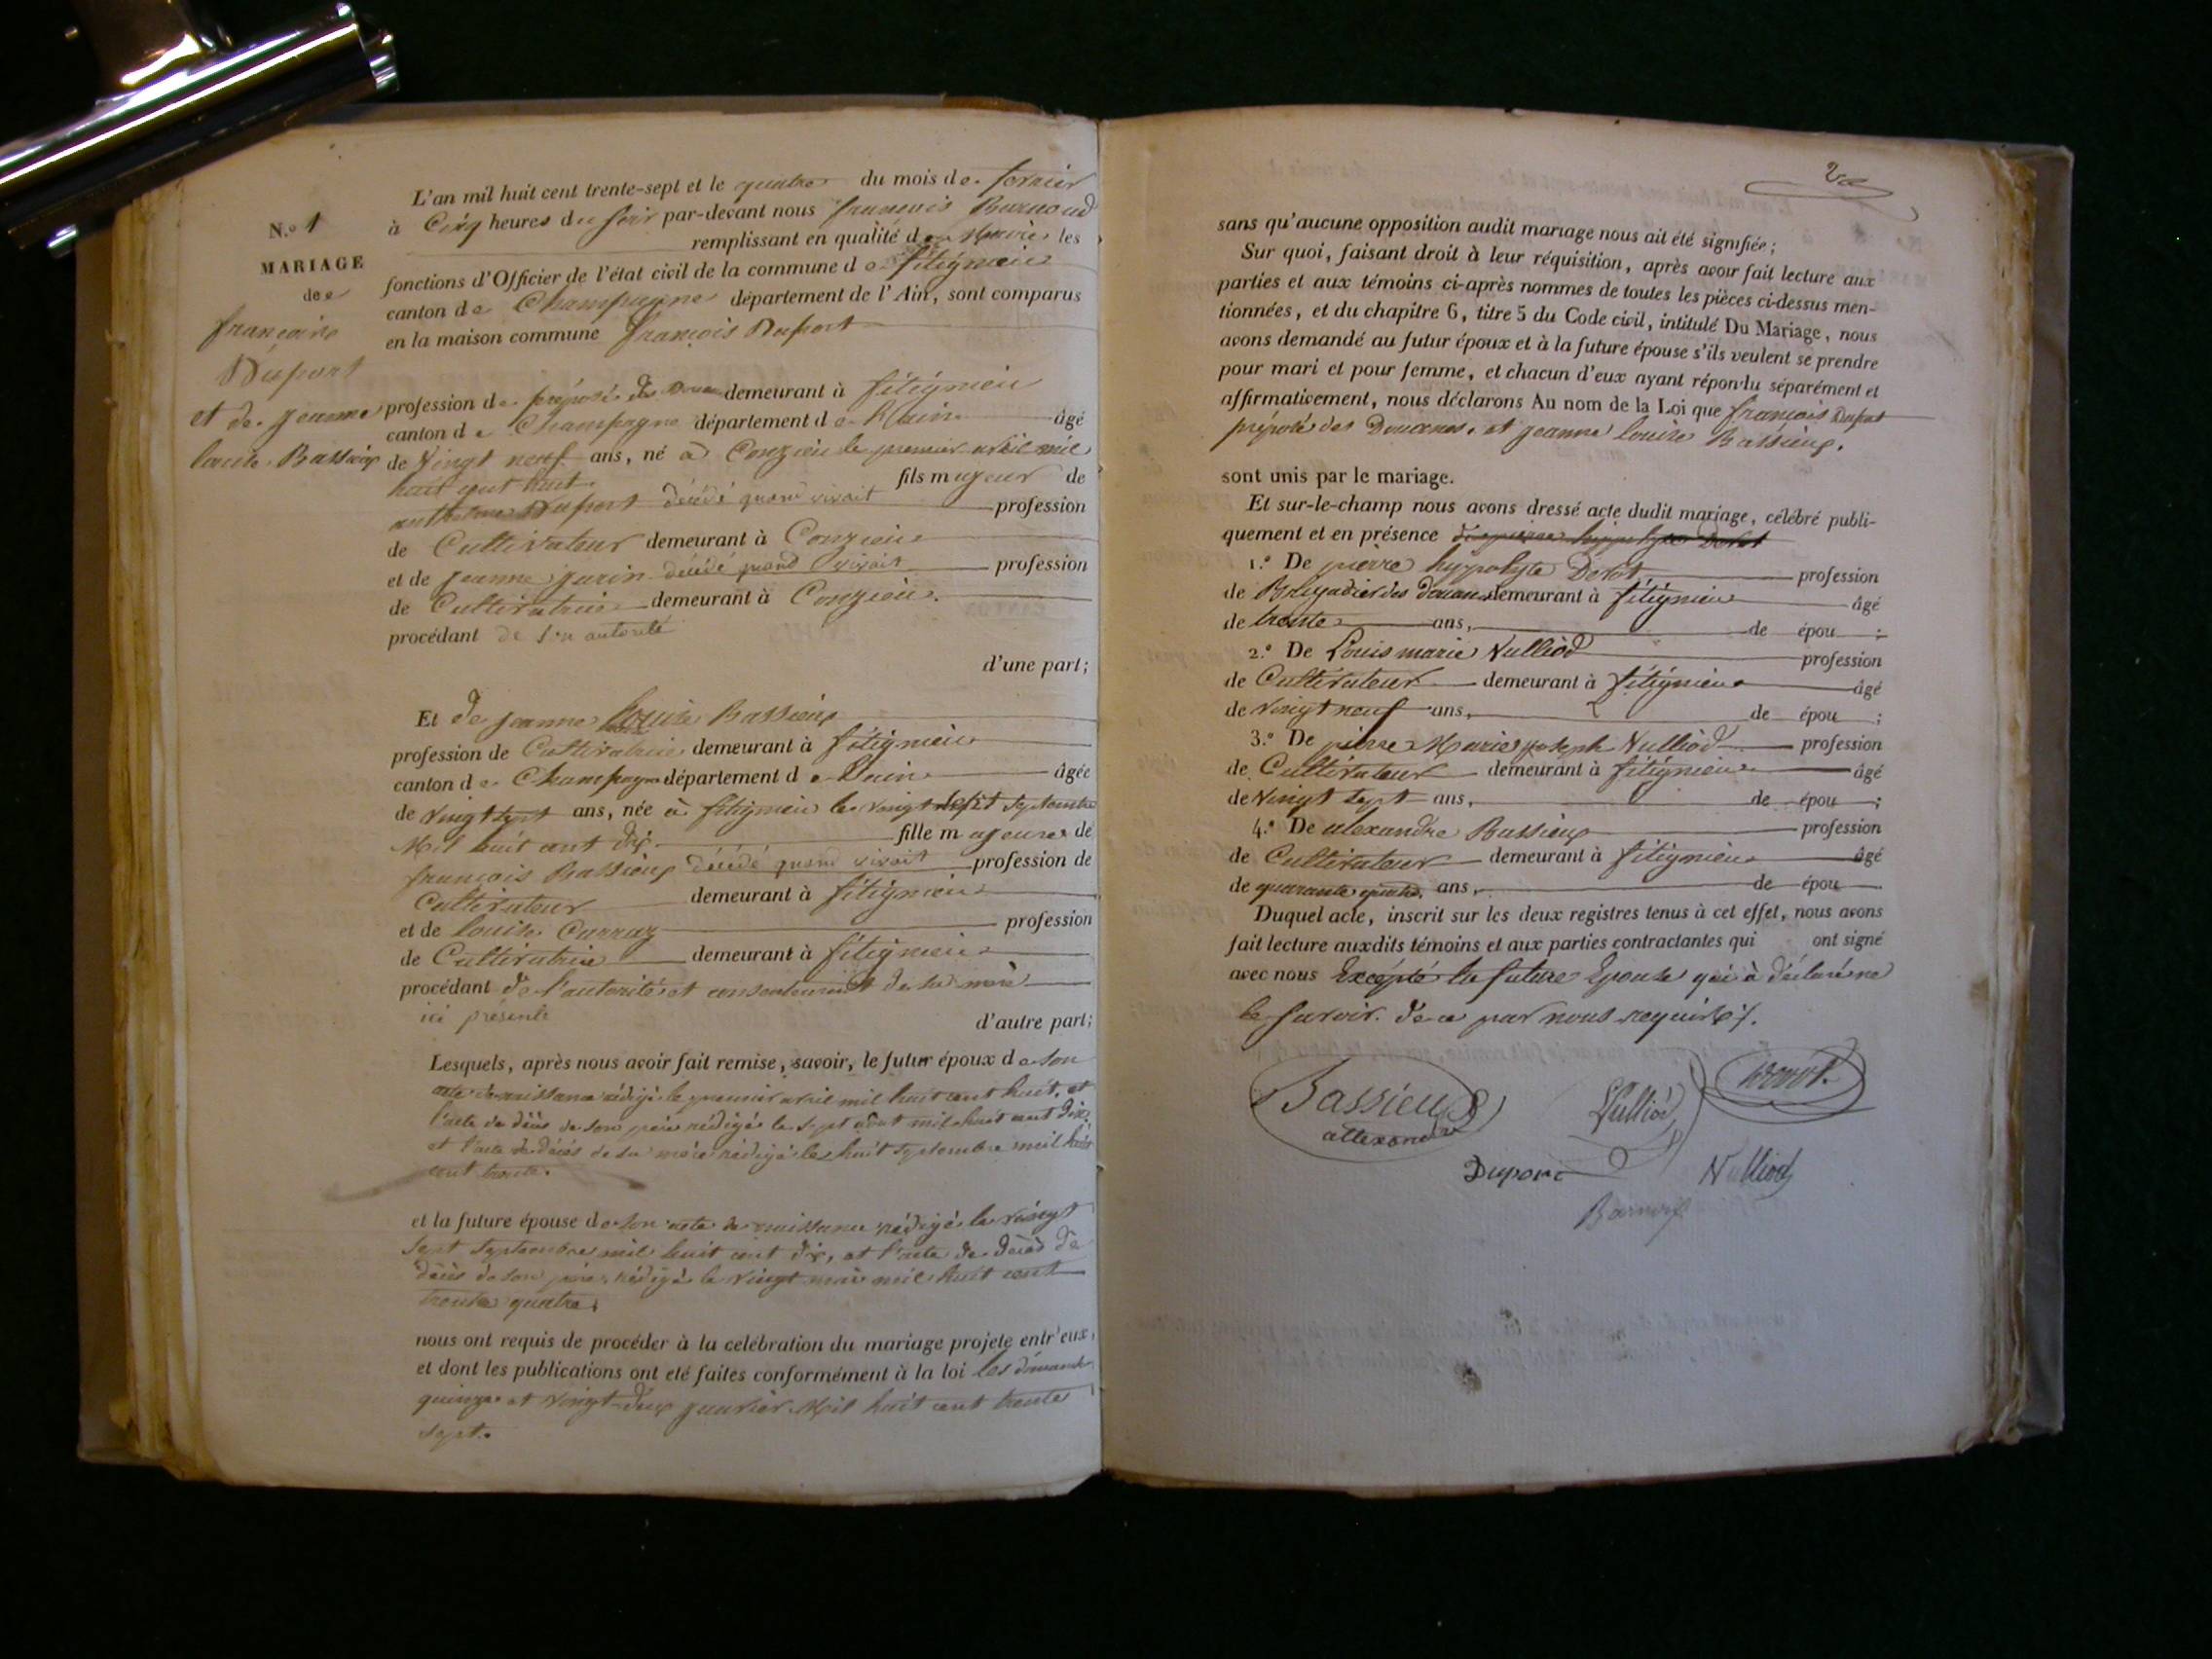 N.o 1
MARIAGE
de
françois
Duport
et de jeanne
louise Bassieux
L'an mil huit cent trente-sept et le quatre du mois de fevrier
à Cinq heures du soir par-devant nous françois Burnoud
remplissant en qualité de Maire les
fonctions d'Officier de l'état civil de la commune de fitignieu
canton de Champagne département de l'Ain, sont comparus
en la maison commune françois Duport
profession de préposé des Douanes demeurant à fitignieu
canton de Champagne département de l'ain âgé
de vingt neuf ans, né à Conzieu le premier avril mil
huit cent huit fils majeur de
anthelme Duport décédé quand vivait profession
de Cultivateur demeurant à Conzieu
et de jeanne jurin décédé quand vivait profession
de Cultivatrice demeurant à Conzieu.
procédant de son autorité
d'une part;
Et de jeanne louise Bassieux
profession de Cultivatrice demeurant à fitignieu
canton de Champagne département de l'ain âgée
de vingt sept ans, née à fitignieu le vingt sept septembre
Mil huit cent dix. fille majeure de
françois Bassieux décédé quand vivait profession de
Cultivateur demeurant à fitignieu
et de louise Carraz profession
de Cultivatrice demeurant à fitignieu
procédant de l'autorité et consentement de sa mère
ici présente
d'autre part;
Lesquels, après nous avoir fait remise, savoir, le futur époux de son
acte de naissance rédigé le premier avril mil huit cent huit, et
l'acte de décès de son père rédigé le sept aout mil huit cent dix
et l'acte de décès de sa mère rédigé le huit septembre mil huit
cent trente.
et la future épouse de son acte de naissance rédigé le vingt
sept septembre mil huit cent dix, et l'acte de décès de
décès de son père rédigé le vingt mai mil huit cent
trente quatre.
nous ont requis de procéder à la celébration du mariage projete entr'eux,
et dont les publications ont eté faites conformément à la loi les dimanche
quinze et vingt-deux janvier Mil huit cent trente
sept.
2
sans qu'aucune opposition audit mariage nous ait été signifiée;
Sur quoi, faisant droit à leur réquisition, après avoir fait lecture aux
parties et aux témoins ci-après nommes de toutes les pièces ci-dessus men-
tionnées, et du chapitre 6, titre 5 du Code civil, intitulé Du Mariage, nous
avons demandé au futur époux et à la future épouse s'ils veulent se prendre
pour mari et pour femme, et chacun d'eux ayant répondu séparément et
affirmativement, nous déclarons Au nom de la Loi que françois Duport
préposé des Douanes. et jeanne louise Bassieux.
sont unis par le mariage.
Et sur-le-champ nous avons dressé acte dudit mariage, célébré publi-
quement et en présence de pierre hyppolyte Dorot
1.o De pierre hyppolyte Dorot profession
de Brigadier des douanes demeurant à fitignieu âgé
de trente ans, de épou ;
2.o De Louis marie Vulliod profession
de Cultivateur demeurant à fitignieu âgé
de vingt neuf ans, de épou ;
3.o De pierre Marie joseph Vulliod profession
de Cultivateur demeurant à fitignieu âgé
de vingt sept ans, de épou ;
4.o De alexandre Bassieux profession
de Cultivateur demeurant à fitignieu âgé
de quarante quatre ans, de épou
Duquel acte, inscrit sur les deux registres tenus à cet effet, nous avons
fait lecture auxdits témoins et aux parties contractantes qui ont signé
avec nous Excépté la future Epouse qui à déclaré ne
le savoir. de ce par nous requise.
Bassieux
allexandre
Vulliod
Dorot
Duport
Vulliod